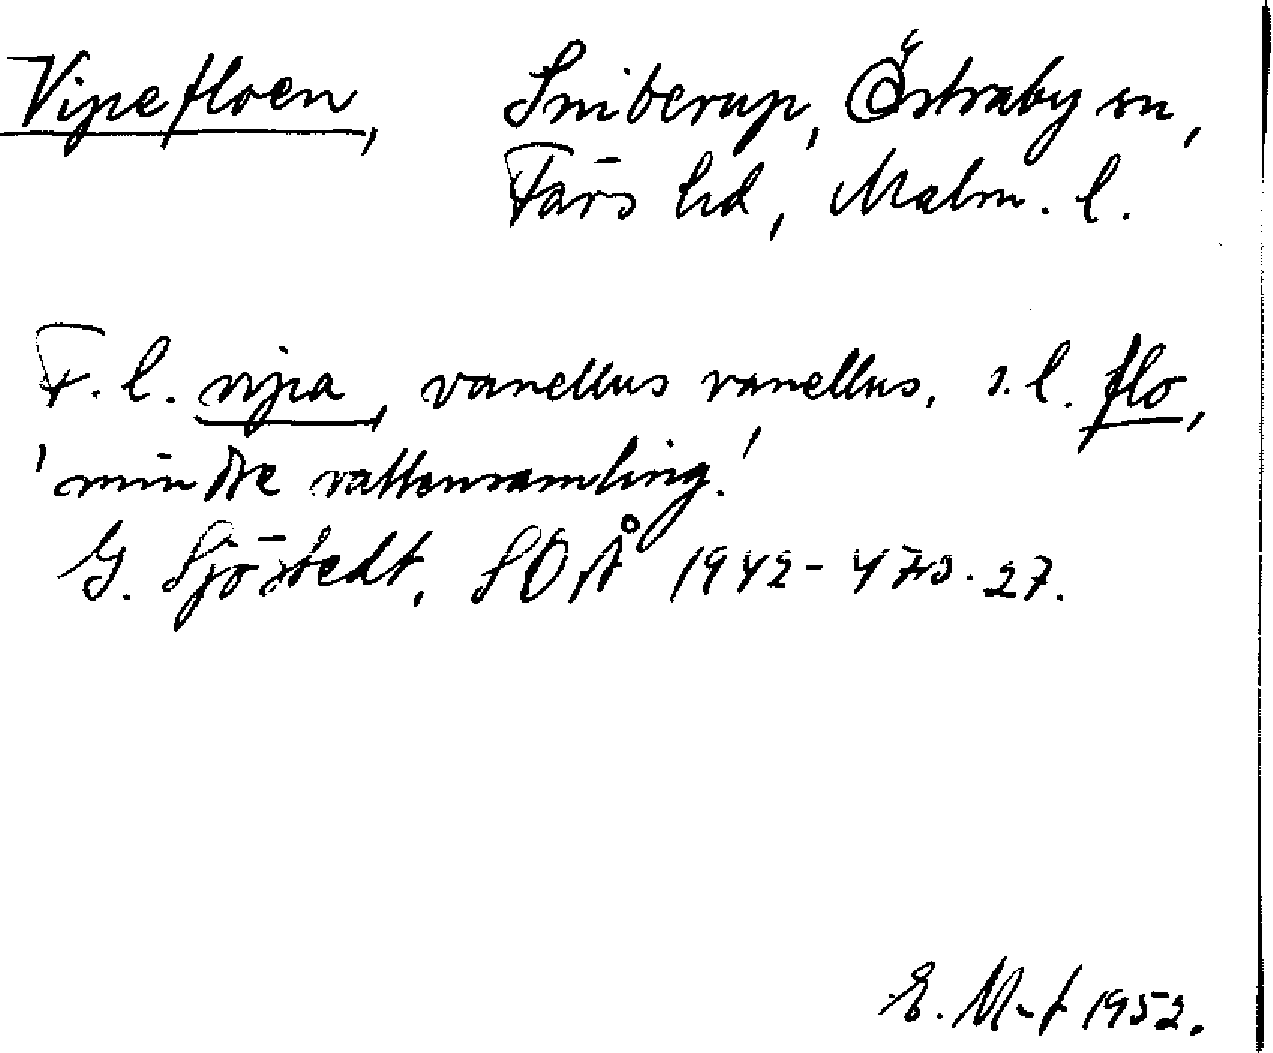 Vipefloen, Sniberup, Östraby sn,
Färs hd, Malm. l.
F. l. vipa, vanellus vanellus, s. l. flo,
'mindre vattensamling.'
G. Sjöstedt, SOÅ 1942- 27.
E. M-f 1952.